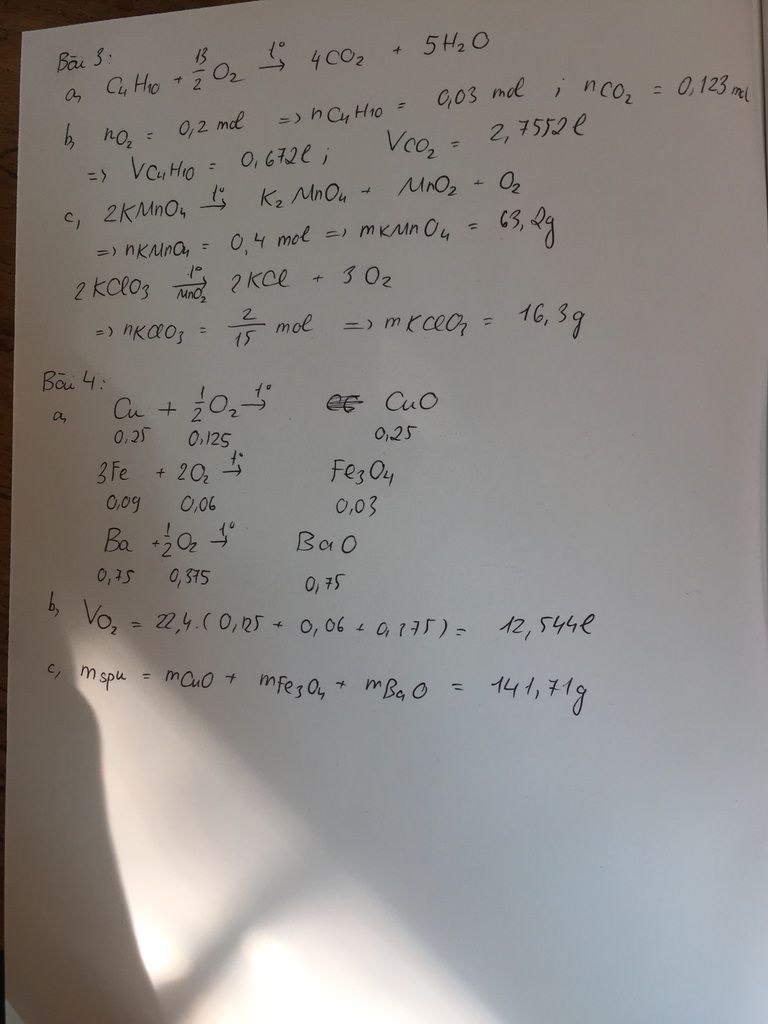 Bài 3:
a, C4H10 + 13/2 O2 t°→ 4CO2 + 5H2O
b, nO2 = 0,2 mol => nC4H10 = 0,03 mol ; nCO2 = 0,123 mol
=> VC4H10 = 0,672l ; VCO2 = 2,7552l
c, 2KMnO4 t°→ K2MnO4 + MnO2 + O2
=> nKMnO4 = 0,4 mol => mKMnO4 = 63,2g
2KClO3 t°→ MnO2 2KCl + 3O2
=> nKClO3 = 2/15 mol => mKClO3 = 16,3g
Bài 4:
a, Cu + 1/2 O2 t°→ CuO
0,25 0,125 0,25
3Fe + 2O2 t°→ Fe3O4
0,09 0,06 0,03
Ba + 1/2 O2 t°→ BaO
0,75 0,375 0,75
b, VO2 = 22,4.(0,125 + 0,06 + 0,375) = 12,544l
c, mspu = mCuO + mFe3O4 + mBaO = 141,71g